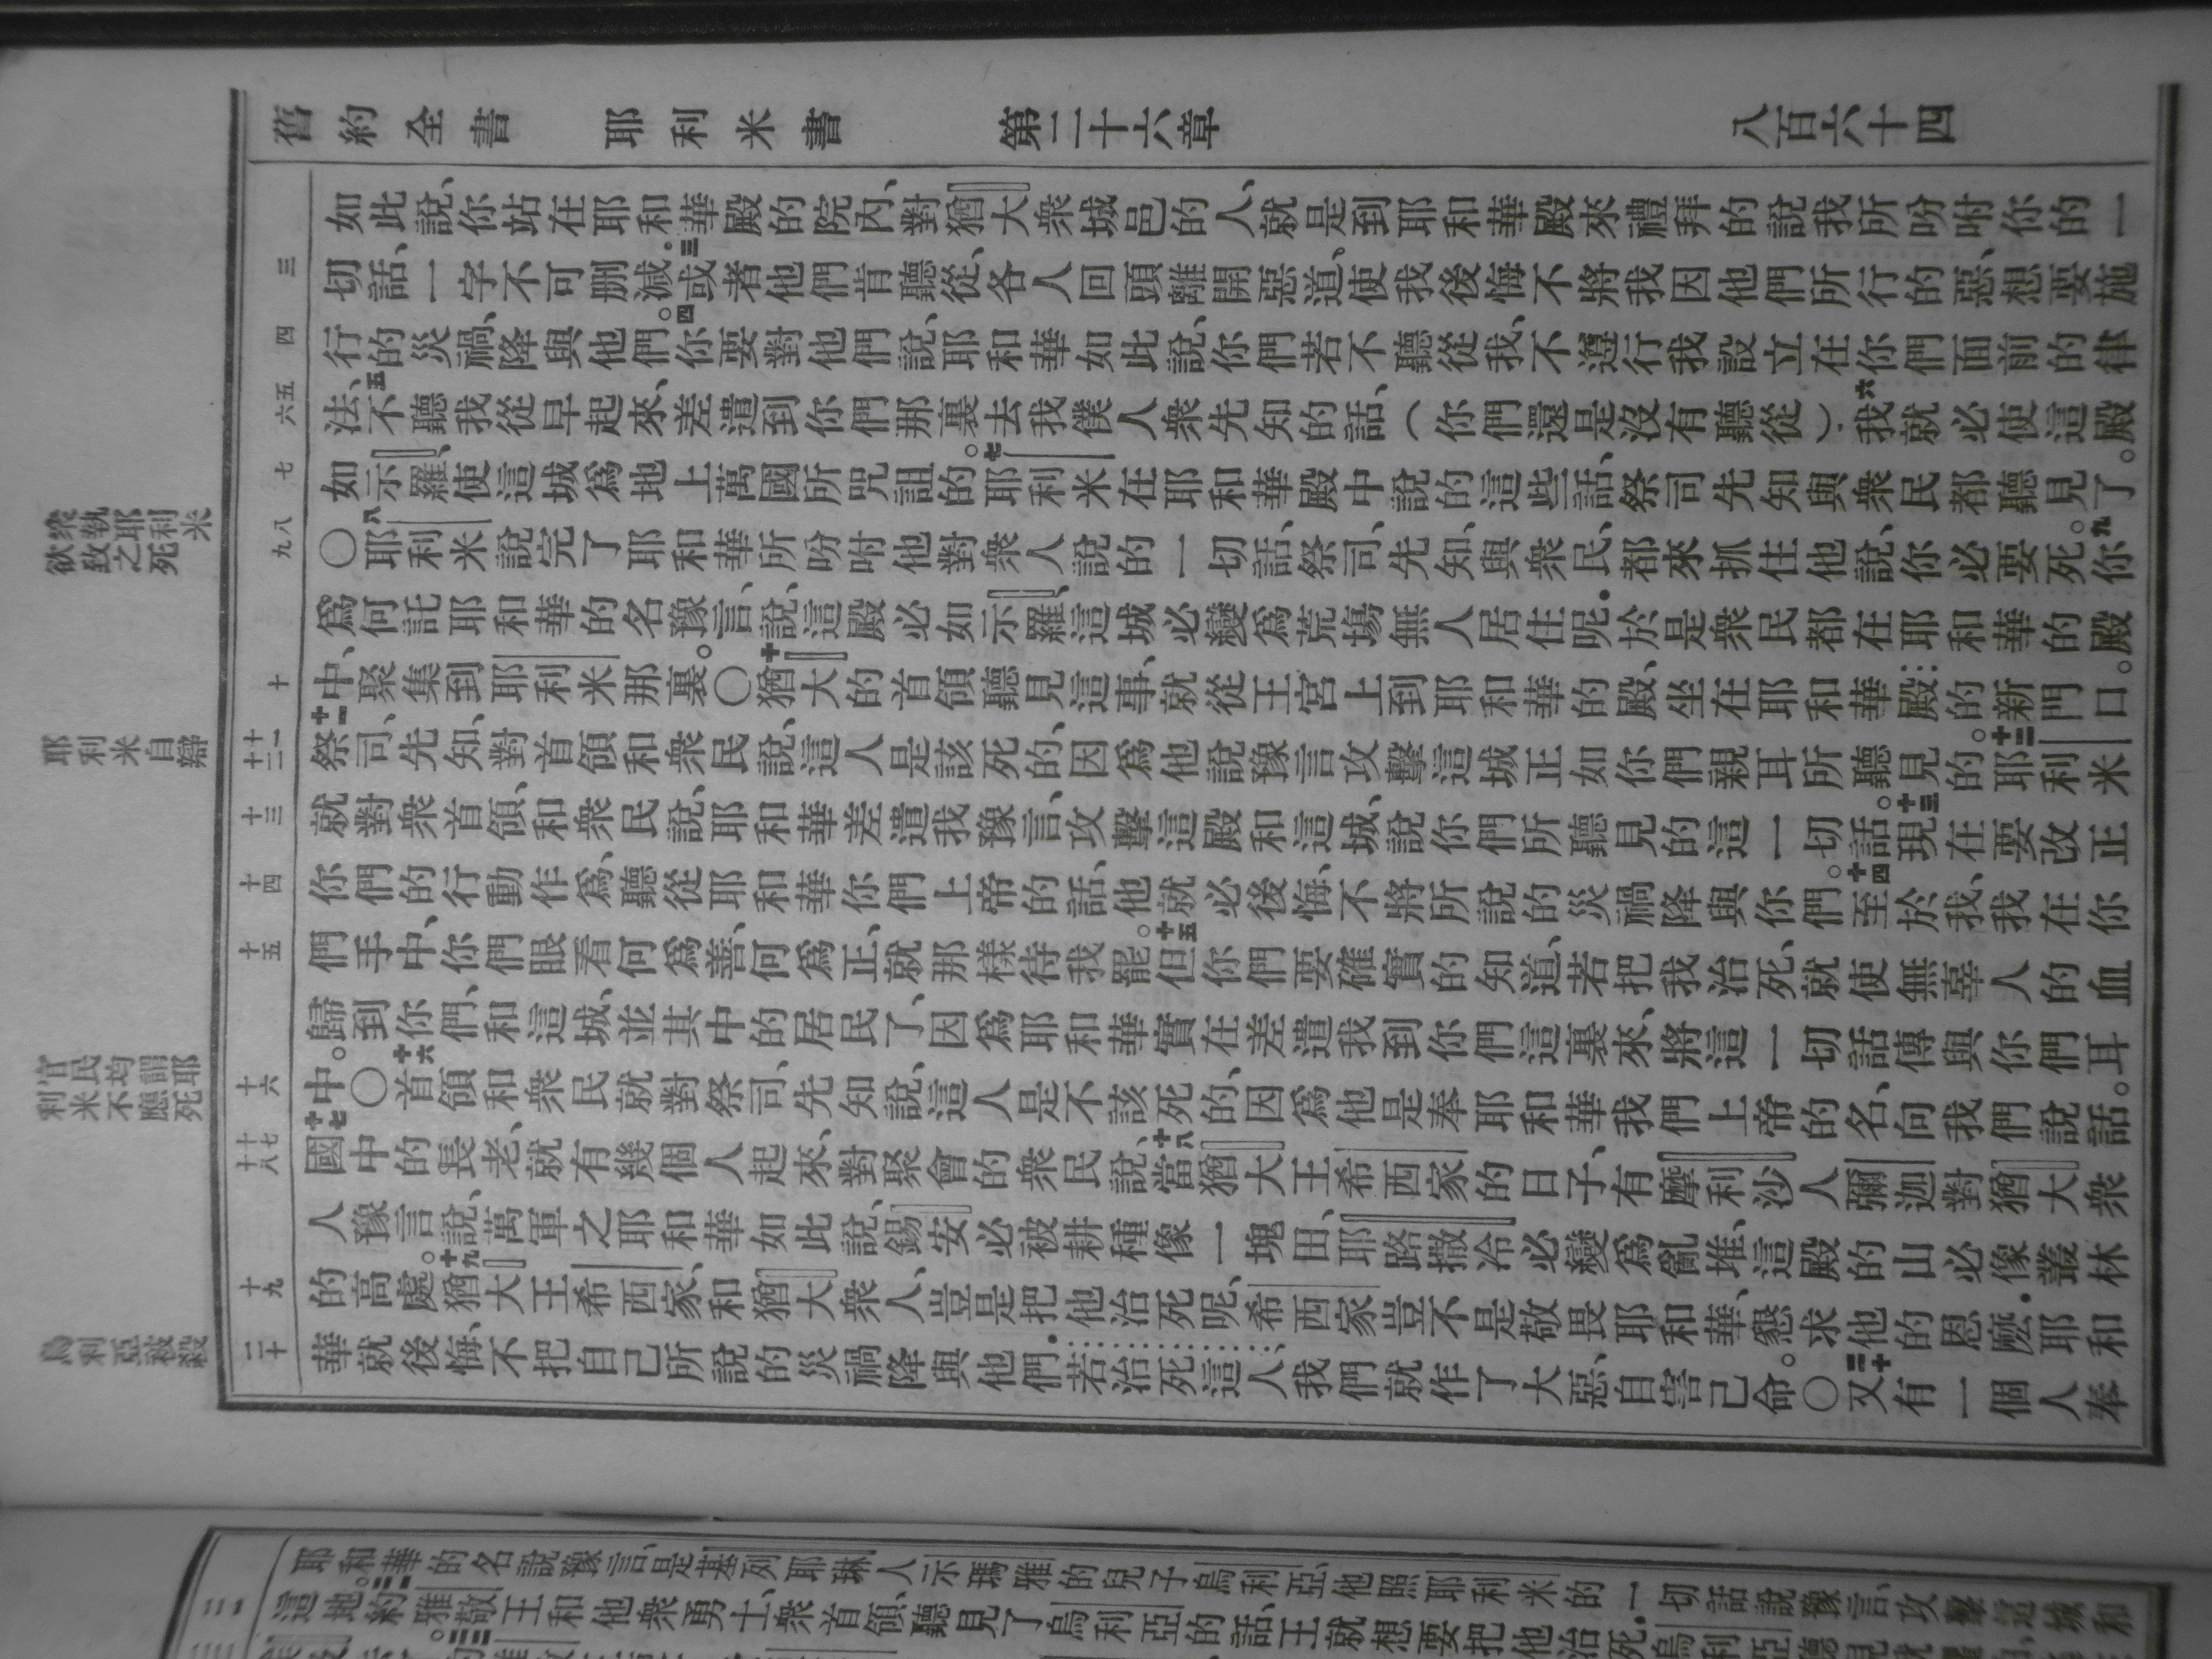 舊約全書 耶利米書 第二十六章 八百六十四
如此說、你站在耶和華殿的院內、對猶大衆城邑的人、就是到耶和華殿來禮拜的說我所吩咐你的一
三
切話、一字不可刪減。三或者他們肯聽從、各人回頭離開惡道、使我後悔不將我因他們所行的惡、想要施
四
行的災禍、降與他們。四你要對他們說、耶和華如此說、你們若不聽從我、不遵行我設立在你們面前的律
五
六
法、五不聽我從早起來、差遣到你們那裏去我僕人衆先知的話、（你們還是沒有聽從）．六我就必使這殿
七
如示羅、使這城爲地上萬國所咒詛的。七耶利米在耶和華殿中說的這些話、祭司先知與衆民都聽見了。
八
九
〇八耶利米說完了耶和華所吩咐他對衆人說的一切話、祭司、先知與衆民、都來抓住他說、你必要死。九你
爲何託耶和華的名豫言、說、這殿必如示羅、這城必變爲荒場無人居住呢．於是衆民都在耶和華的殿
十
中、聚集到耶利米那裏。〇十猶大的首領聽見這事、就從王宮上到耶和華的殿、坐在耶和華殿的新門口。
十一
十二
十一祭司、先知、對首領和衆民說、這人是該死的、因爲他說豫言攻擊這城、正如你們親耳所聽見的。十二耶利米
十三
就對衆首領、和衆民說、耶和華差遣我豫言、攻擊這殿和這城、說你們所聽見的這一切話。十三現在要改正
十四
你們的行動作爲、聽從耶和華你們上帝的話、他就必後悔、不將所說的災禍降與你們。十四至於我、我在你
十五
們手中、你們眼看何爲善、何爲正、就那樣待我罷。十五但你們要確實的知道、若把我治死、就使無辜人的血
歸到你們、和這城、並其中的居民了、因爲耶和華實在差遣我到你們這裏來、將這一切話傳與你們耳
十六
中。〇十六首領和衆民就對祭司、先知說、這人是不該死的、因爲他是奉耶和華我們上帝的名、向我們說話。
十七
十八
十七國中的長老、就有幾個人起來、對聚會的衆民說、十八當猶大王希西家的日子、有摩利沙人彌迦對猶大衆
人豫言說、萬軍之耶和華如此說、錫安必被耕種像一塊田、耶路撒冷必變爲亂堆、這殿的山必像叢林
十九
的高處。十九猶大王希西家、和猶大衆人、豈是把他治死呢、希西家豈不是敬畏耶和華、懇求他的恩麽．耶和
二十
華就後悔、不把自己所說的災禍降與他們．若治死這人、我們就作了大惡、自害己命。〇二十又有一個人奉
衆執耶利米
欲致之死
耶利米自辯
官民均謂耶
利米不應死
烏利亞被殺
耶和華的名說豫言、是基列耶琳人示瑪雅的兒子烏利亞、他照耶利米的一切話說豫言、攻擊這城和
這地。約雅敬王和他衆勇士、衆首領、聽見了烏利亞的話、王就想要把他治死．烏利亞聽見